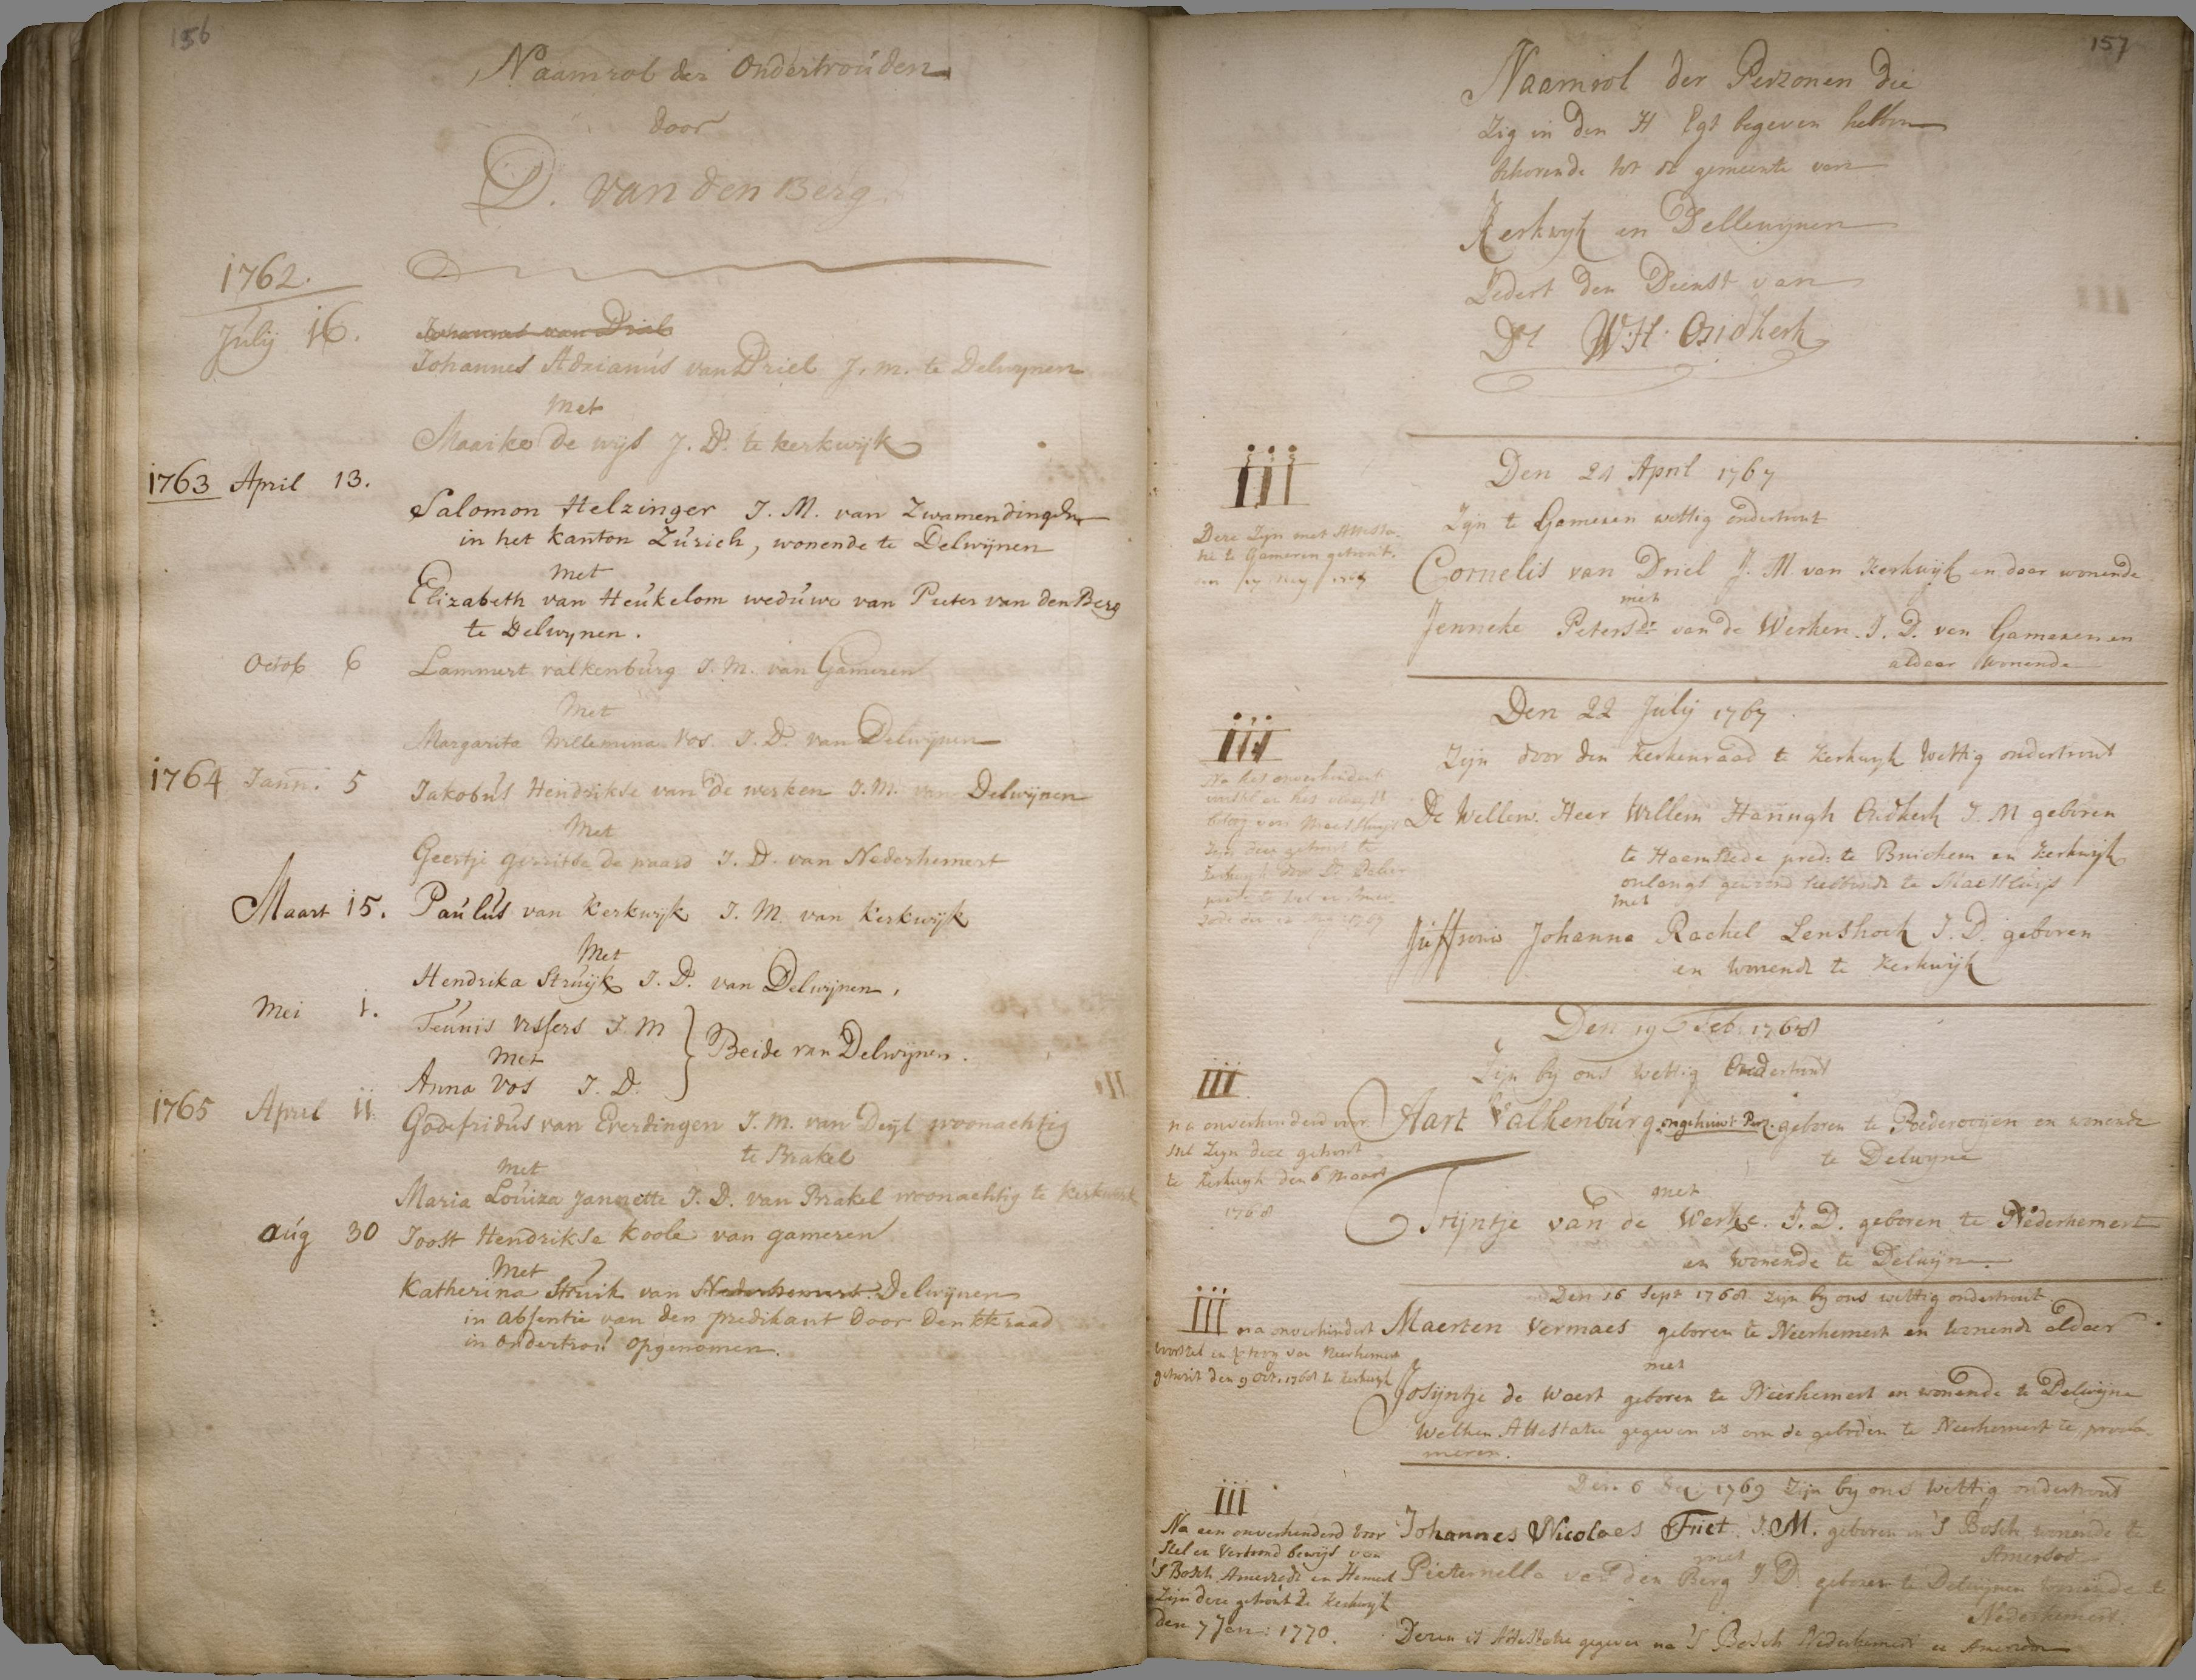 156
Naamrol der Ondertrouden
door
D. van den Berg
1762.
Julij 16.
Johannes van Driel
Johannes Adrianus van Driel J. m. te Delwynen
Met
Maaike de wijs J. D. te kerkwijk
1763 April 13.
Salomon Helzinger J. M. van Zwamendingen
in het kanton Zurich, wonende te Delwijnen
Met
Elizabeth van Heukelom weduwe van Pieter van den Berg
te Delwynen.
Octob 6 Lammert valkenburg J. M. van Gameren
Met
Margarita Willemina Vos. J. D. van Delwijnen
1764 Jann. 5 Jakobus Hendrikse van de werken J. M. van Delwijnen
Met
Geertje gerritse de waard J. D. van Nederhemert
Maart 15. Paulus van Kerkwijk J. M. van Kerkwijk
Met
Hendrika Struijk J. D. van Delwijnen,
Mei 1. Teunis vissers J. M
Met
Beide van Delwijnen.
Anna Vos J. D.
1765 April 11. Godefridus van Everdingen J. M. van Deijl woonachtig
te Brakel
Met
Maria Louiza Jannette J. D. van Brakel woonachtig te Kerkwijk
aug 30 Joost Hendrikse Koole van gameren
Met
Katherina Struik van Nederhemert. Delwijnen
in absentie van den predikant door den kkraad
in ondertrou opgenomen.
157
Naamrol der Perzonen die
Zig in den H Egt begeven hebben
behorende tot de gemeente van
Kerkwyk en Dellewijnen
Zedert den Dienst van
Ds W. H. Oudkerk
iii
Deze Zijn met Attesta-
tie te Gameren getrout.
Den 21 April 1767
Zijn te Gameren wettig ondertrout
Cornelis van Driel J. M van Kerkwijk en daar wonende
met
Jenneke Petersdr van de Werken. J. D. van Gameren en
aldaar wonende
iii
Na het onverhindert
Den 22 Julij 1767
Zijn door den Kerkenraad te Kerkwyk Wettig ondertrout
De Wellew. Heer Willem Haringh Oudkerk J. M geboren
te Haemstede pred: te Bruchem en Kerkwijk
onlangs gewoond hebbende te Maessluijs
met
Juffrouw Johanna Rachel Lenshoek J. D. geboren
en wonende te Kerkwijk
iii
na onverhinderd voor
stel Zijn deze getrout
te Kerkwyk den 6 Maart
1768
Den 19 Feb: 1768
Zijn by ons Wettig Ondertrout
Aart Valkenburg, ongehuwt Perz. geboren te Poederooyen en wonende
te Delwyne
met
Trijntje van de Werke. J. D. geboren te Nederhemert
en wonende te Delwijne.
iii na onverhindert
Den 16 Sept 1768 Zijn by ons wettig ondertrout
Maerten Vermaes geboren te Neerhemert en wonende aldaer
met
Josijntje de Waert geboren te Neerhemert en wonende te Delwijne
Welken Attestatie gegeven is om de geboden te Neerhemert te procla-
meren.
iii
Na een onverhinderd voor
stel en vertoond bewijs van
'S Bosch Amerzode en Hemert
Zijn deze getrout te Kerkwijk
den 7 Jan: 1770.
Den 6 1769 Zijn by ons Wettig ondertrout
Johannes Nicolaes Friet. J. M. geboren in 'S Bosch wonende te
Amersode
met
Pieternella van den Berg J. D. geboren te Delwijnen wonende te
Nederhemert.
Dezen is Attestatie gegeven na 'S Bosch Nederhemert en Amerzode